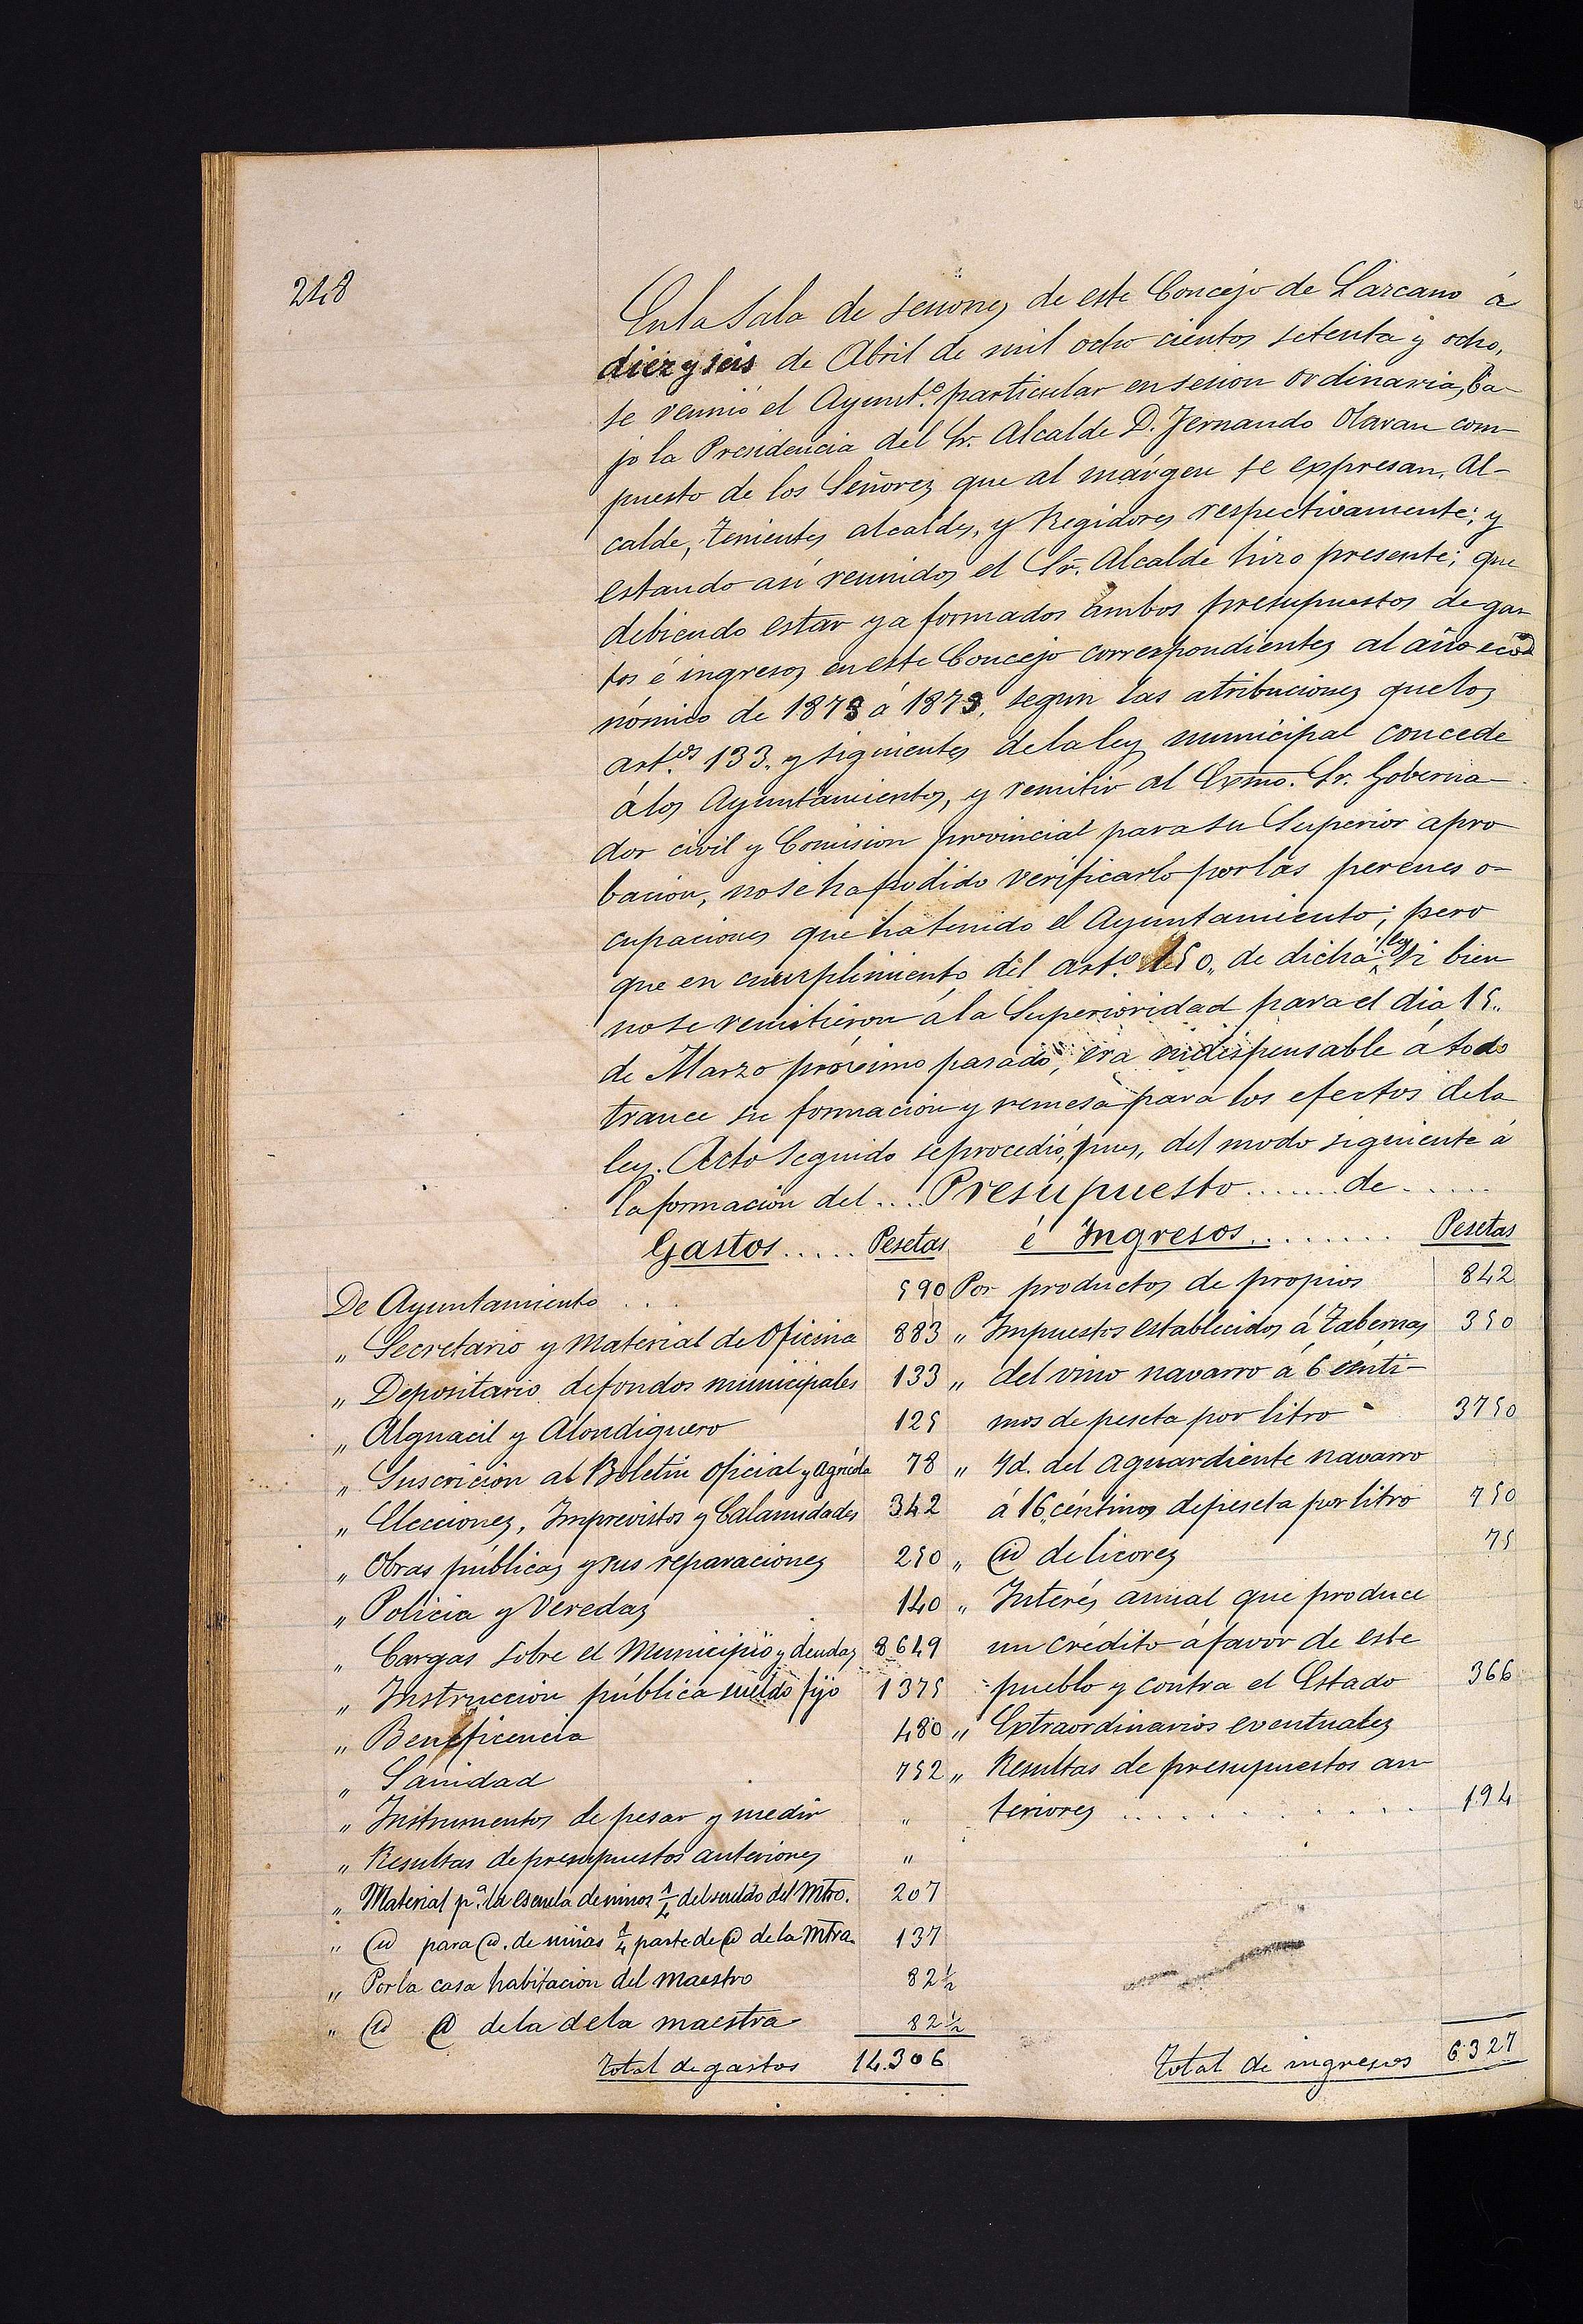 248
En la Sala de sesiones de este Concejo de Lazcano á
diez y seis de Abril de mil ocho cientos setenta y ocho,
se reunió el Ayunt.º particular en sesion ordinaria, ba-
jo la Presidencia del Sr. Alcalde D. Fernando Olaran com-
puesto de los Señores que al márgen se expresan, Al-
calde, tenientes alcaldes, y Regidores respectivamente; y
estando asi reunidos el Sr. Alcalde hizo presente; que
debiendo estar ya formados ambos presupuestos de gas-
tos é ingresos en este Concejo correspondientes al año eco-
nómico de 1878 á 1879, segun las atribuciones que los
art.os 133. y siguientes de la ley municipal concede
á los Ayuntamientos, y remitir al Exmo. Sr. Goberna-
dor civil y Comision provincial para su Superior apro
bacion, no se ha podido verificarlo por las perenes o-
cupaciones que ha tenido el Ayuntamiento; pero
que en cumplimiento del art.º 150,, de dicha ley si bien
no se remitieron á la Superioridad para el dia 15..
de Marzo próximo pasado, era indispensable á todo
trance su formacion y remesa para los efectos de la
ley. Acto seguido se procedió, pues, del modo siguiente á
la formacion del .... Presupuesto ........ de ......
Gastos ..... Pesetas é Ingresos ......... Pesetas
De Ayuntamiento . . . 590 Por productos de propios 842
„ Secretario y Material de Oficina 883 „ Impuestos establecidos á Tabernas 350
„ Depositario de fondos municipales 133 „ del vino navarro á 6 cénti-
„ Alguacil y Alondiguero 125 mos de peseta por litro 3750
„ Suscricion al Boletin oficial y Agrícola 78 „ Yd. del aguardiente navarro
„ Elecciones, Imprevistos y Calamidades 342 á 16 céntimos de peseta por litro 750
„ Obras públicas y sus reparaciones 250 „ @ de licores 75
„ Policia y Veredas 140 „ Interés anual que produce
„ Cargas sobre el Municipio y deudas 8619 un crédito á favor de este
„ Instruccion pública sueldo fijo 1375 pueblo y contra el Estado 366
„ Beneficencia 480 „ Extraordinarios eventuales
„ Sanidad 752 „ Resultas de presupuestos an-
„ Instrumentos de pesar y medir „ teriores . . . . . . . . . . . 194
„ Resultas de presupuestos anteriores „
„ Material p.ª la escuela de niños 1/4 del sueldo del Mtro. 207
„ @ para @. de niñas 1/4 parte de @ de la Mtra. 137
„ Por la casa habitacion del maestro 82 1/2
„ @ @ de la de la maestra 82 1/2
Total de gastos 14.306 Total de ingresos 6327